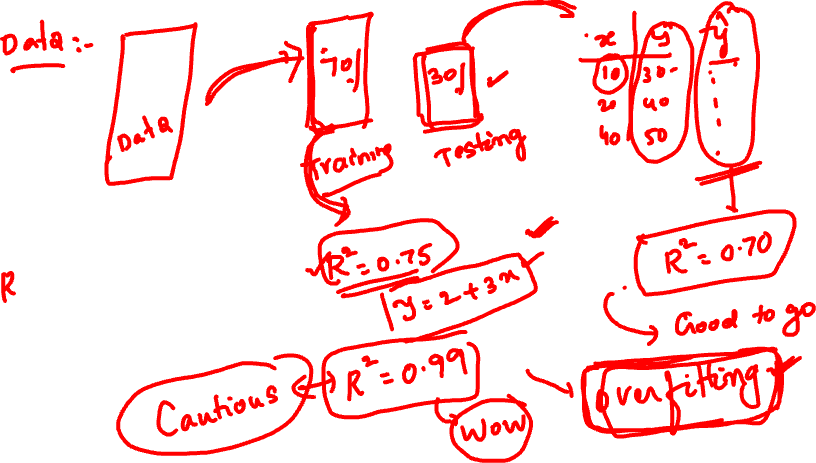 Data :-
Data
70%
Training
30%
Testing
x y ŷ
10 30
20 40
40 50
R² = 0.75
y = 2 + 3x
R² = 0.70
Good to go
R
Cautious
R² = 0.99
Wow
Overfitting